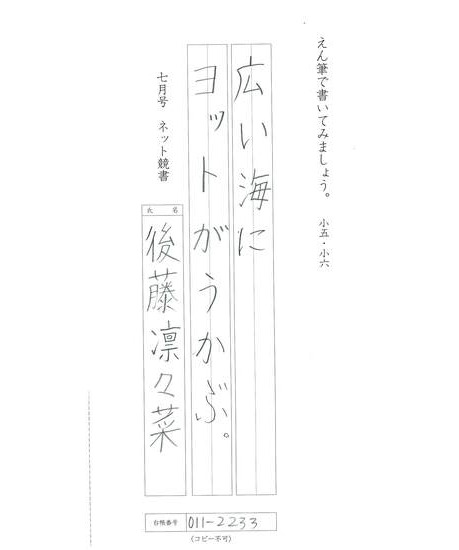 えん筆で書いてみましょう。 小五・小六
広い海に
ヨットがうかぶ。
七月号 ネット競書
氏 名
後藤凛々菜
台帳番号 011-2233
(コピー不可)